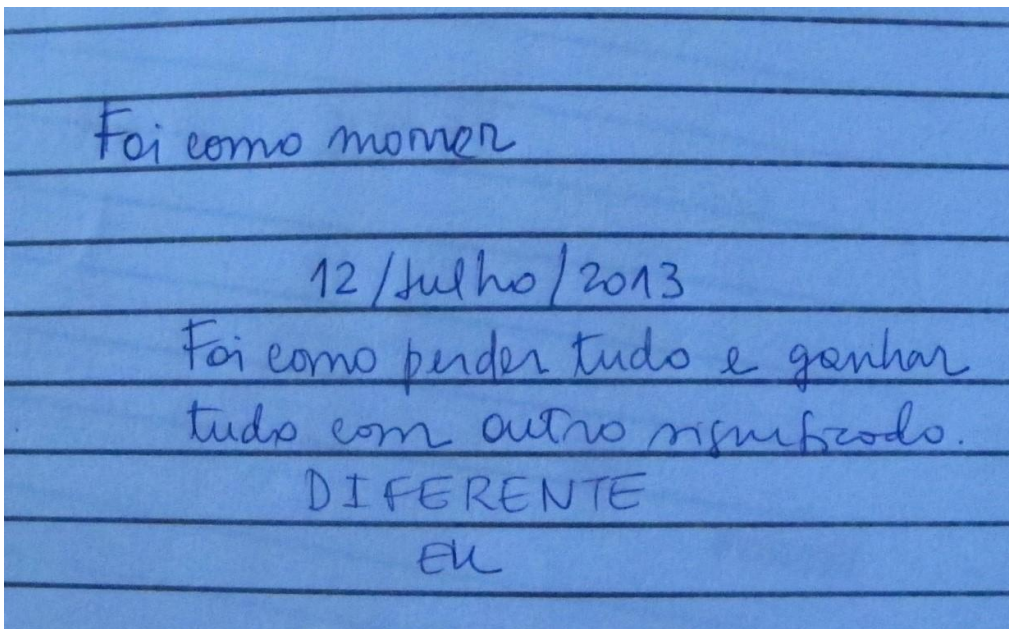 Foi como morrer
12/Julho/2013
Foi como perder tudo e ganhar
tudo com outro significado.
DIFERENTE
EU